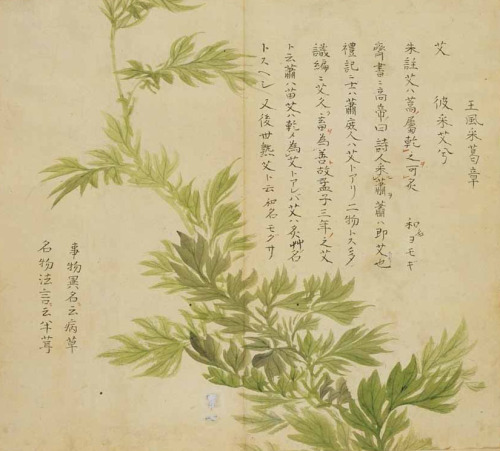 王風采葛章
艾　彼采艾兮
朱註艾ハ蒿屬乾之可灸　和名ヨモギ
齊書ニ高帝曰詩人采蕭蕭ハ即艾也
禮記ニ士ハ蕭庶人ハ艾トアリ二物トス
識編ニ艾久ク畜為善故孟子三年之艾
ト云蕭ハ苗艾ハ乾メ為艾トアレバ艾ハ灸艸名
トスヘシ又後世熟艾ト云和名モグサ
事物異名云病草
名物法言云半茸